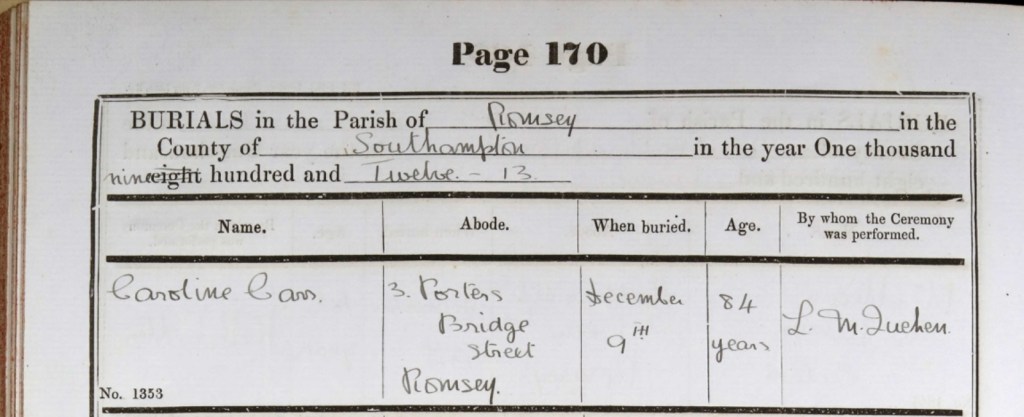 Page 170
BURIALS in the Parish of Romsey in the
County of Southampton in the year One thousand
nine eight hundred and Twelve - 13
Name. Abode. When buried. Age. By whom the Ceremony was performed.
Caroline 3. Porters December 84 L. M.
Bridge 9TH years
Street
Romsey.
No. 1353